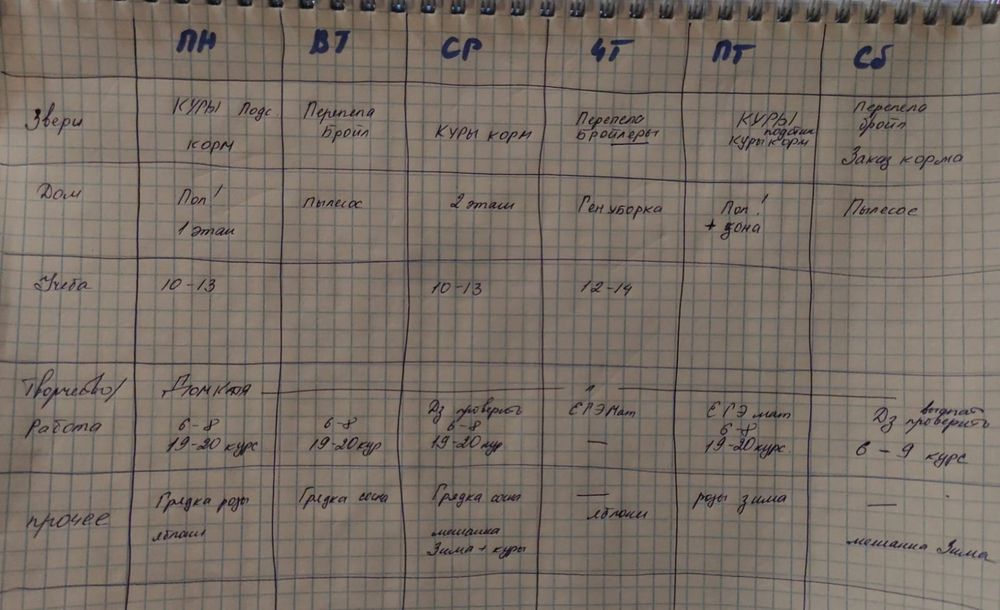 ПН ВТ СР ЧТ ПТ Сб
Звери
КУРЫ Подс.
корм
Перепела
Бройл
КУРЫ корм
Перепела
Бройлеры
КУРЫ
подстил
Куры корм
Перепела
бройл
Заказ корма
Дом
Пол!
1 этаж
пылесос
2 этаж
Ген уборка
Пол!
+ зона
Пылесос
Учеба
10-13
10-13
12-14
Творчество/
работа
6-8
19-20 курс
6-8
19-20 кур
Дз проверить
6-8
19-20 кур
ЕГЭ мат
—
ЕГЭ мат
6-8
19-20 курс
Дз проверить
6-9 курс
прочее
Грядка розы
яблоки
Грядка сосна
Грядка сосна
мешанка
Зима + куры
—
яблоки
розы зима
—
мешанка Зима